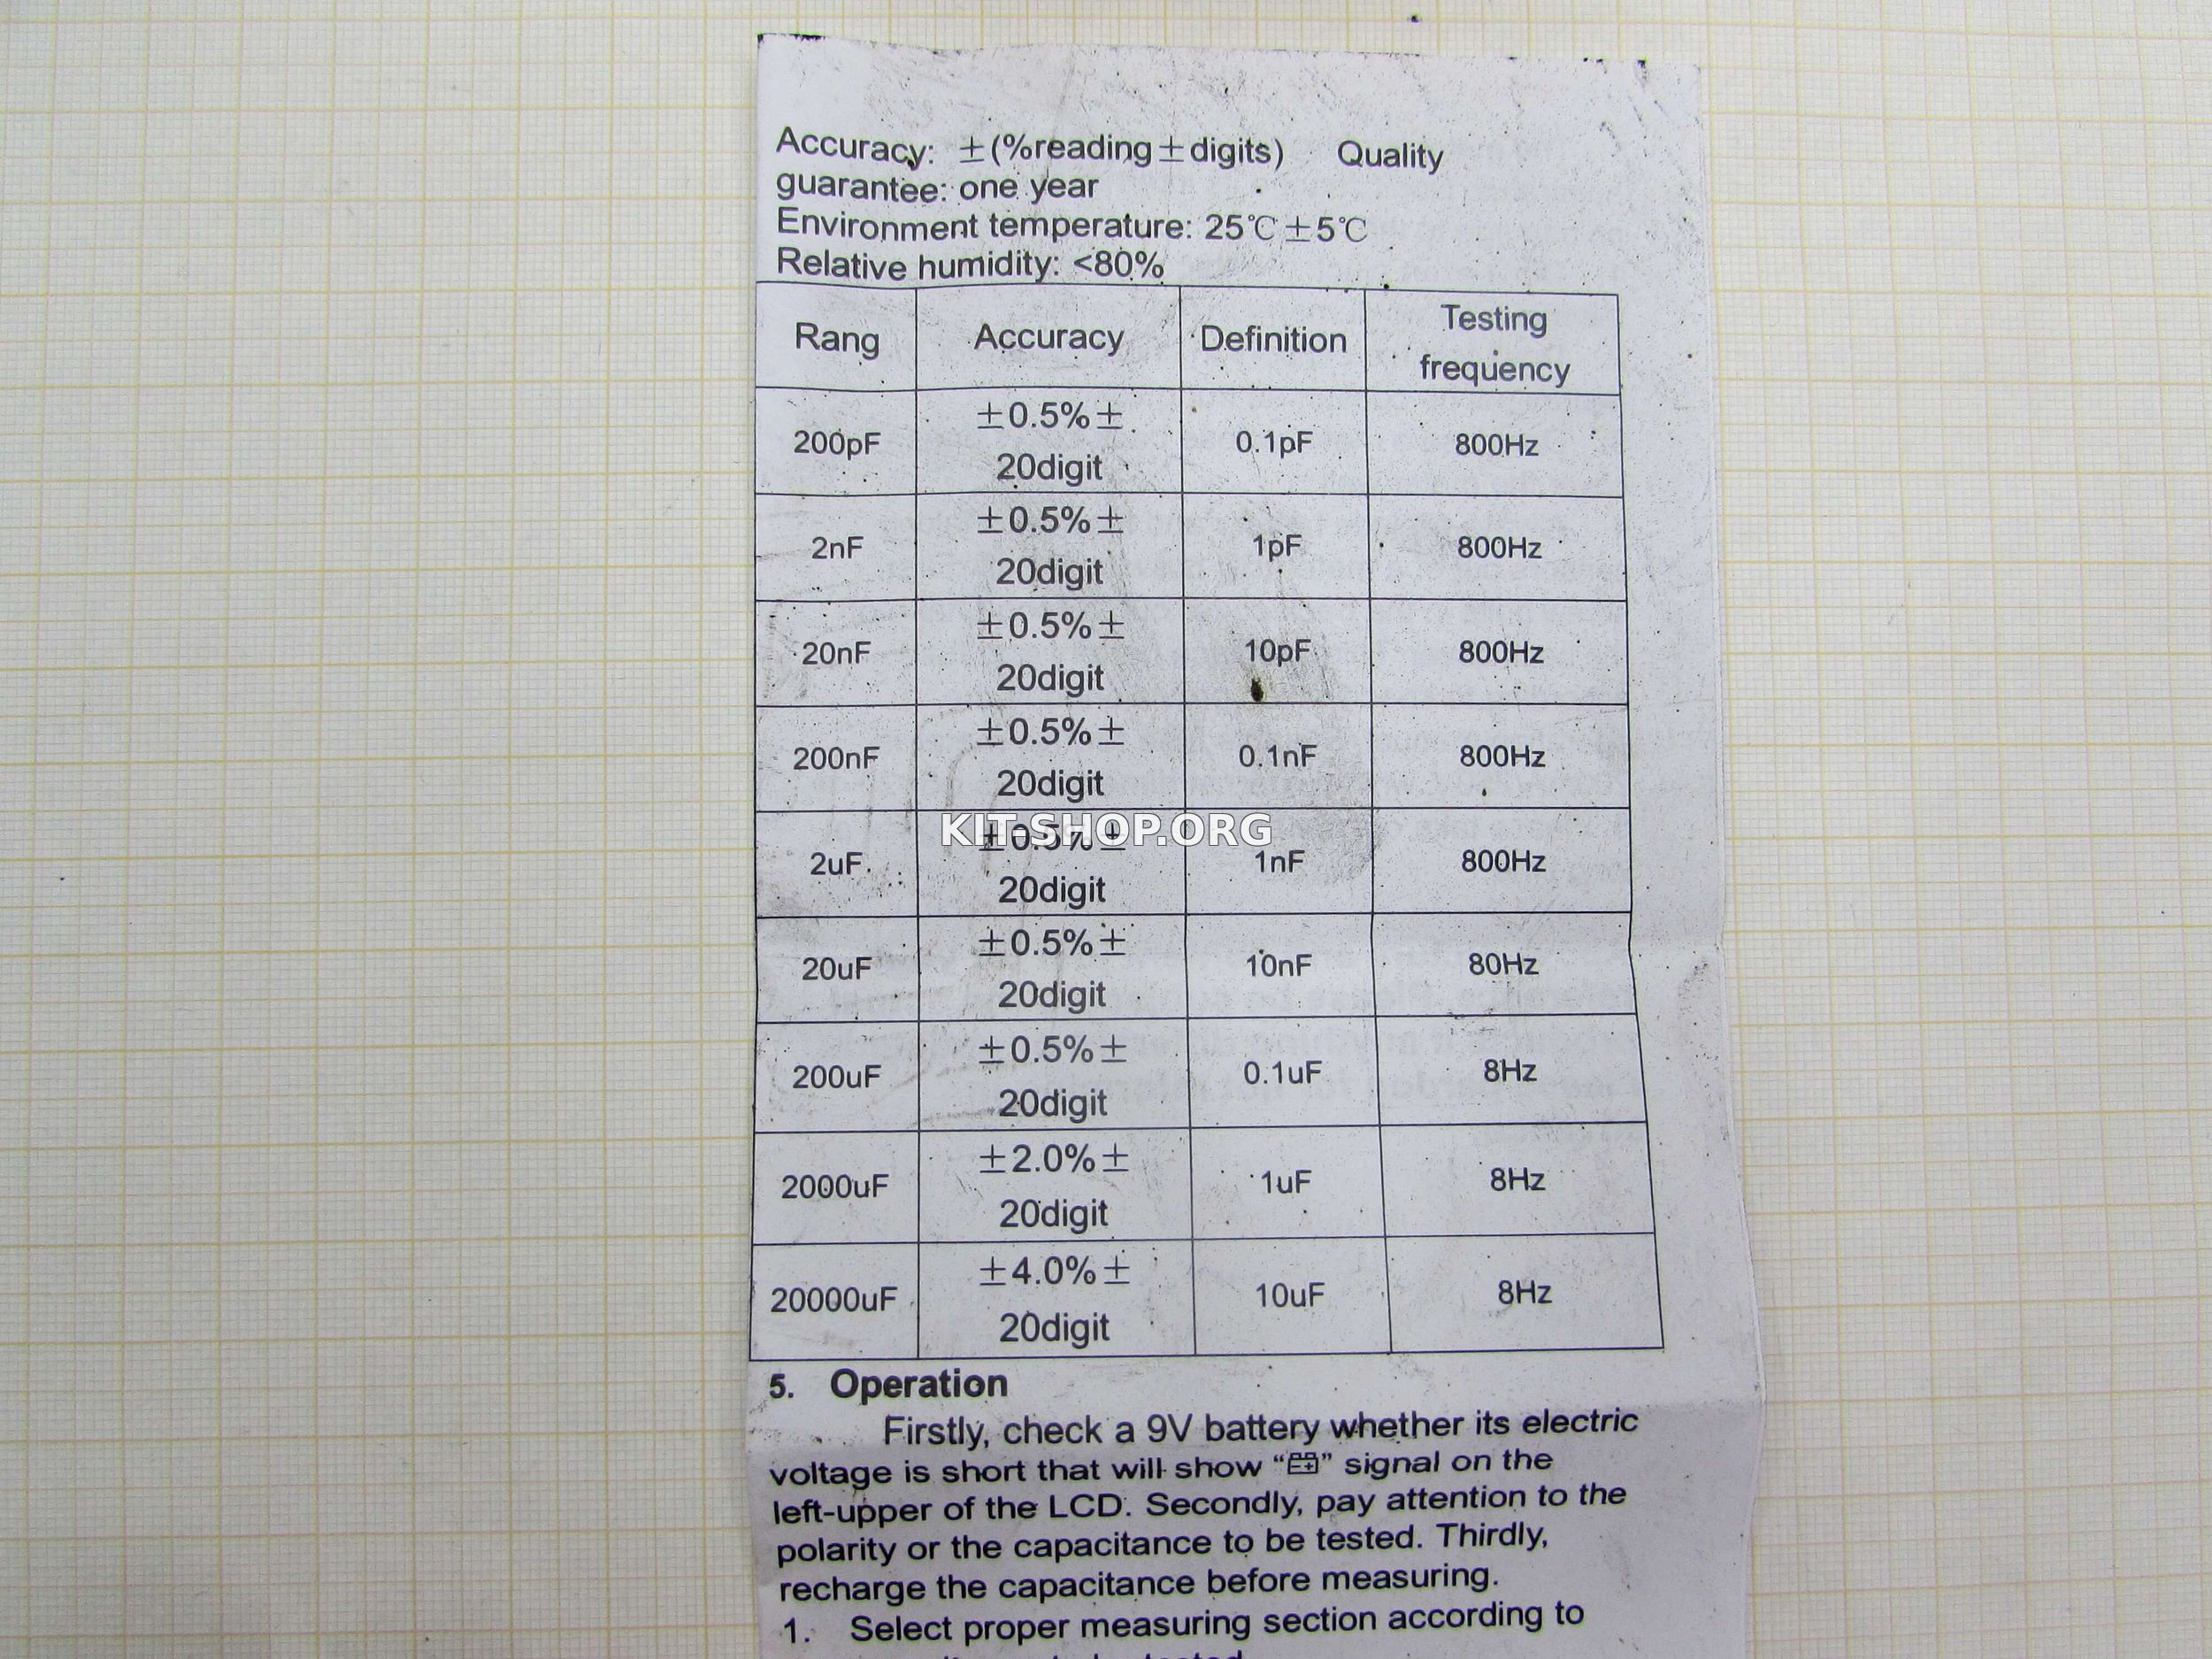 Accuracy: ±(%reading±digits) Quality
guarantee: one year
Environment temperature: 25℃±5℃
Relative humidity: <80%
Rang Accuracy Definition Testing frequency
200pF ±0.5%± 20digit 0.1pF 800Hz
2nF ±0.5%± 20digit 1pF 800Hz
20nF ±0.5%± 20digit 10pF 800Hz
200nF ±0.5%± 20digit 0.1nF 800Hz
KIT-SHOP.ORG
2uF ±0.5%± 20digit 1nF 800Hz
20uF ±0.5%± 20digit 10nF 80Hz
200uF ±0.5%± 20digit 0.1uF 8Hz
2000uF ±2.0%± 20digit 1uF 8Hz
20000uF ±4.0%± 20digit 10uF 8Hz
5. Operation
Firstly, check a 9V battery whether its electric
voltage is short that will show “” signal on the
left-upper of the LCD. Secondly, pay attention to the
polarity or the capacitance to be tested. Thirdly,
recharge the capacitance before measuring.
1. Select proper measuring section according to